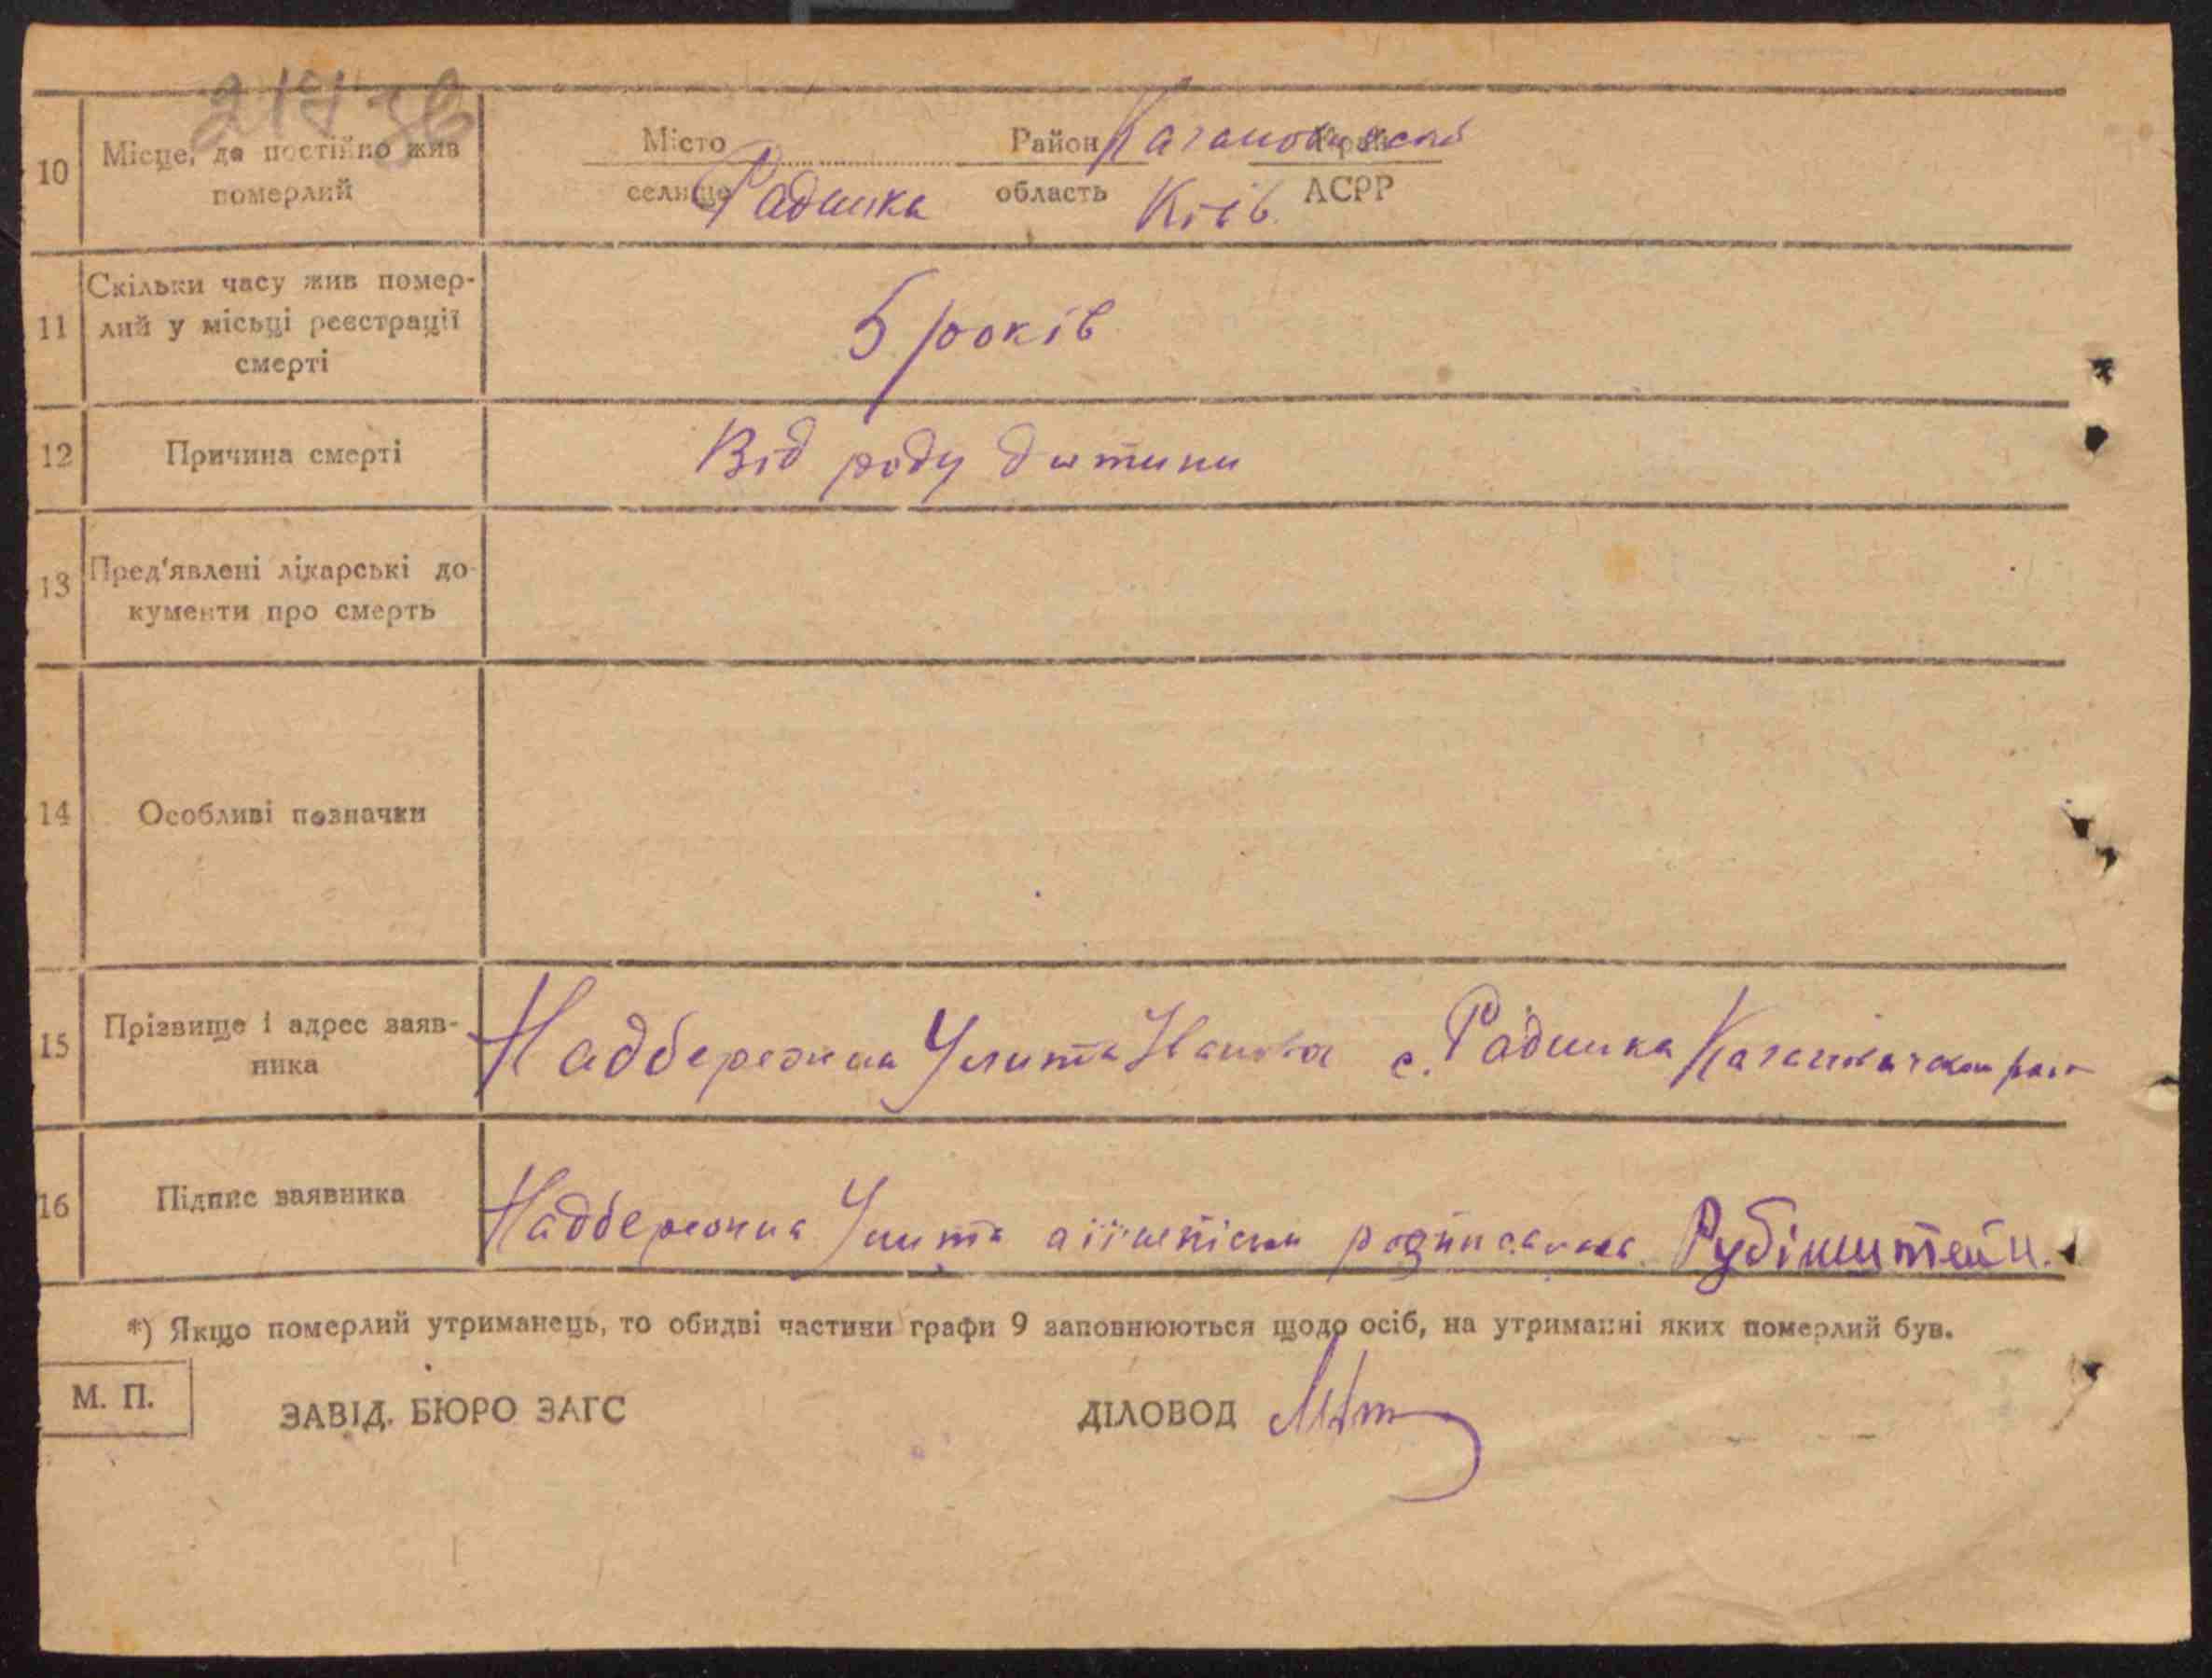 10 Місце, де постійно жив померлий
Місто Район Кагановический Край
селище Радинка область Київ. АСРР
11 Скільки часу жив помер-
лий у місьці реєстрації
смерті
5 років
12 Причина смерті Від роду дитини
13 Пред'явлені лікарські до-
кументи про смерть
14 Особливі позначки
15 Прізвище і адрес заяв-
ника
Надбережна Улита с. Радинка
16 Підпис заявника Надбережна Улита Рубінштейн.
*) Якщо померлий утриманець, то обидві частини графи 9 заповнюються щодо осіб, на утриманні яких померлий був.
М. П. ЗАВІД. БЮРО ЗАГС ДІЛОВОД